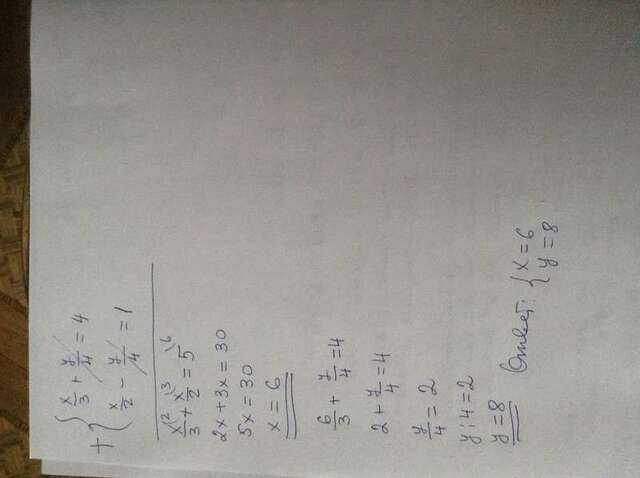 + { x/3 + y/4 = 4
{ x/2 - y/4 = 1
x\2/3 + x\3/2 = 5\6
2x + 3x = 30
5x = 30
x = 6
6/3 + y/4 = 4
2 + y/4 = 4
y/4 = 2
y : 4 = 2
y = 8
Ответ: { x = 6
{ y = 8